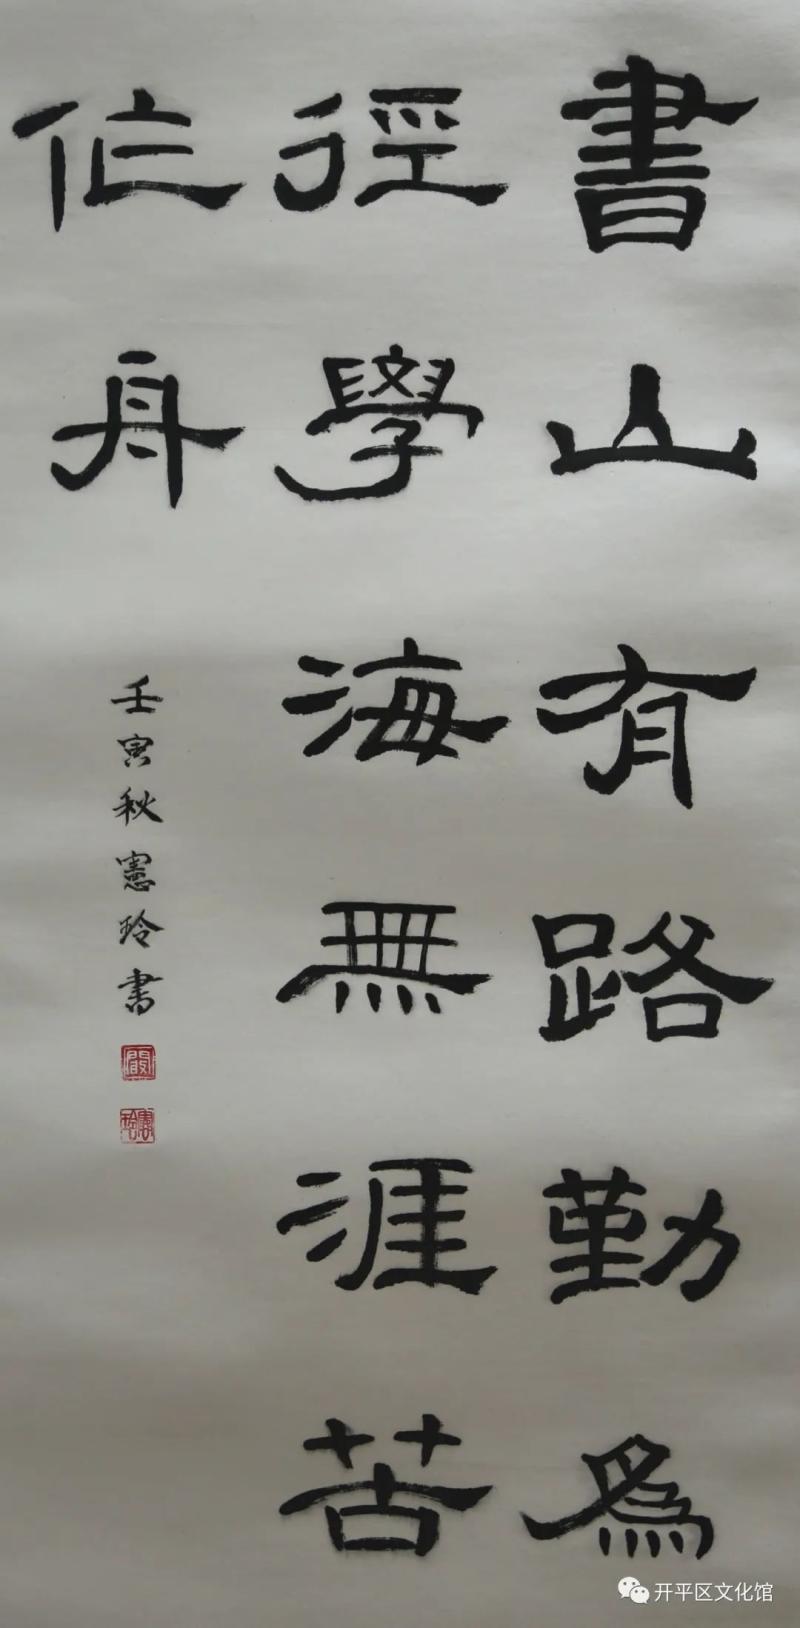 書山有路勤為
徑學海無涯苦
作舟
壬寅秋憲玲書
開平区文化馆